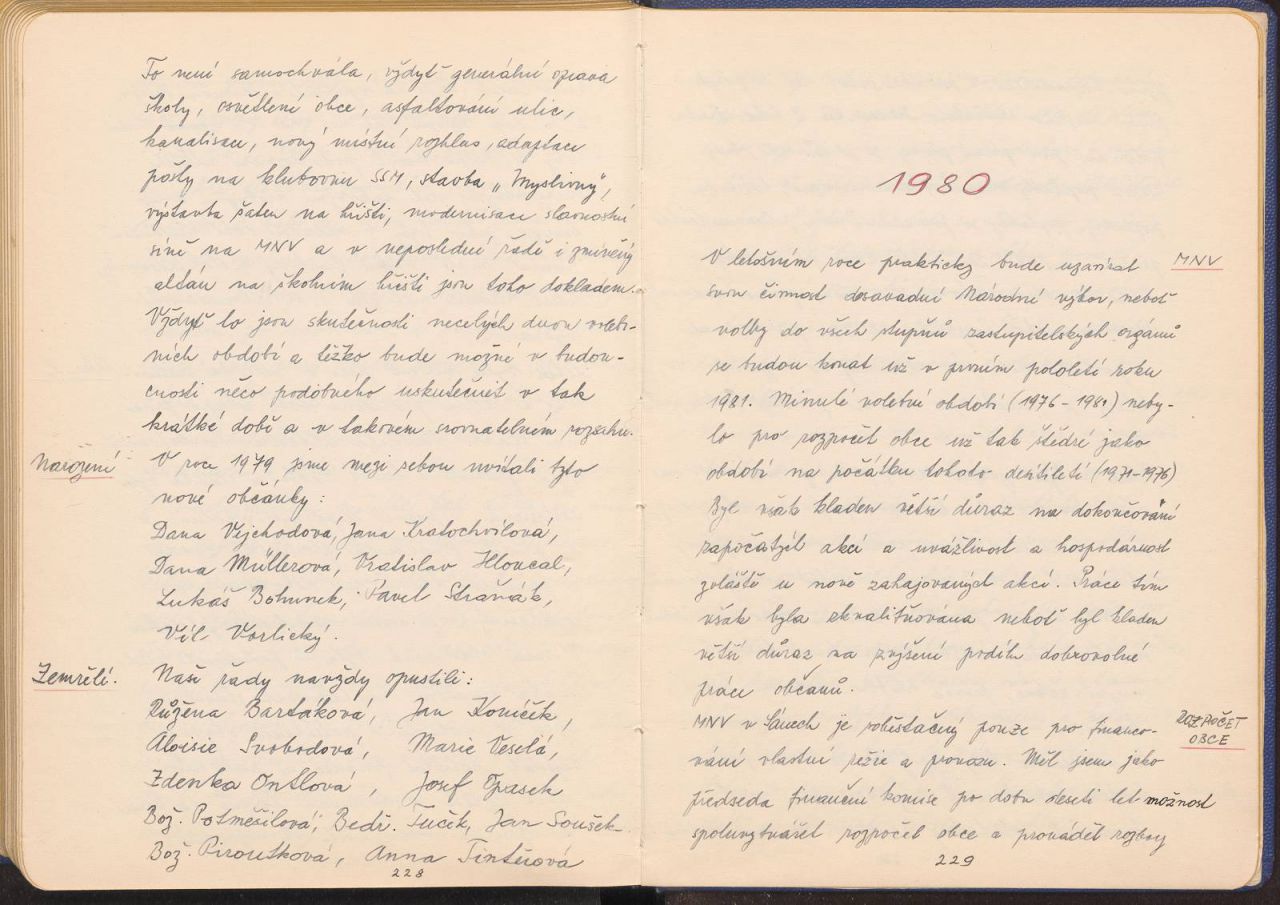 To není samochvála, vždyť generální oprava
školy, osvětlení obce, asfaltování ulic,
kanalisace, nový místní rozhlas, adaptace
pošty na klubovnu SSM, stavba „Myslivny",
výstavba šaten na hřišti, modernisace slavnostní
síně na MNV a v neposlední řadě i zmíněný
altán na školním hřišti jsou toho dokladem.
Vždyť to jsou skutečnosti necelých dvou voleb-
ních období a těžko bude možné v budou-
cnosti něco podobného uskutečnit v tak
krátké době a v takovém srovnatelném rozsahu.
Narození
V roce 1979 jsme mezi sebou uvítali tyto
nové občánky:
Dana Vejchodová, Jana Kratochvílová,
Dana Müllerová, Vratislav Hloucal,
Lukáš Bohunek, Pavel Straňák,
Vít Vorlický.
Zemřelí.
Naše řady navždy opustili:
Růžena Bartáková, Jan Koníček,
Aloisie Svobodová, Marie Veselá,
Zdenka Ontlová, Josef Opasek
Bož. Potměšilová, Bedř. Tuček, Jan Soušek
Bož. Piroutková, Anna Tintěrová
228
1980
MNV
V letošním roce prakticky bude uzavírat
svou činnost dosavadní Národní výbor, neboť
volby do všech stupňů zastupitelských orgánů
se budou konat už v prvním pololetí roku
1981. Minulé volební období (1976-1981) neby-
lo pro rozpočet obce už tak štědré jako
období na počátku tohoto desítiletí (1971-1976)
Byl však kladen větší důraz na dokončování
započatých akcí a uvážlivost a hospodárnost
zvláště u nově zahajovaných akcí. Práce tím
však byla zkvalitňována neboť byl kladen
větší důraz na zvýšení podílu dobrovolné
práce občanů.
ROZPOČET
OBCE
MNV v Sánech je soběstačný pouze pro financo-
vání vlastní režie a provozu. Měl jsem jako
předseda finanční komise po dobu deseti let možnost
spoluvytvářet rozpočet obce a provádět rozbory
229